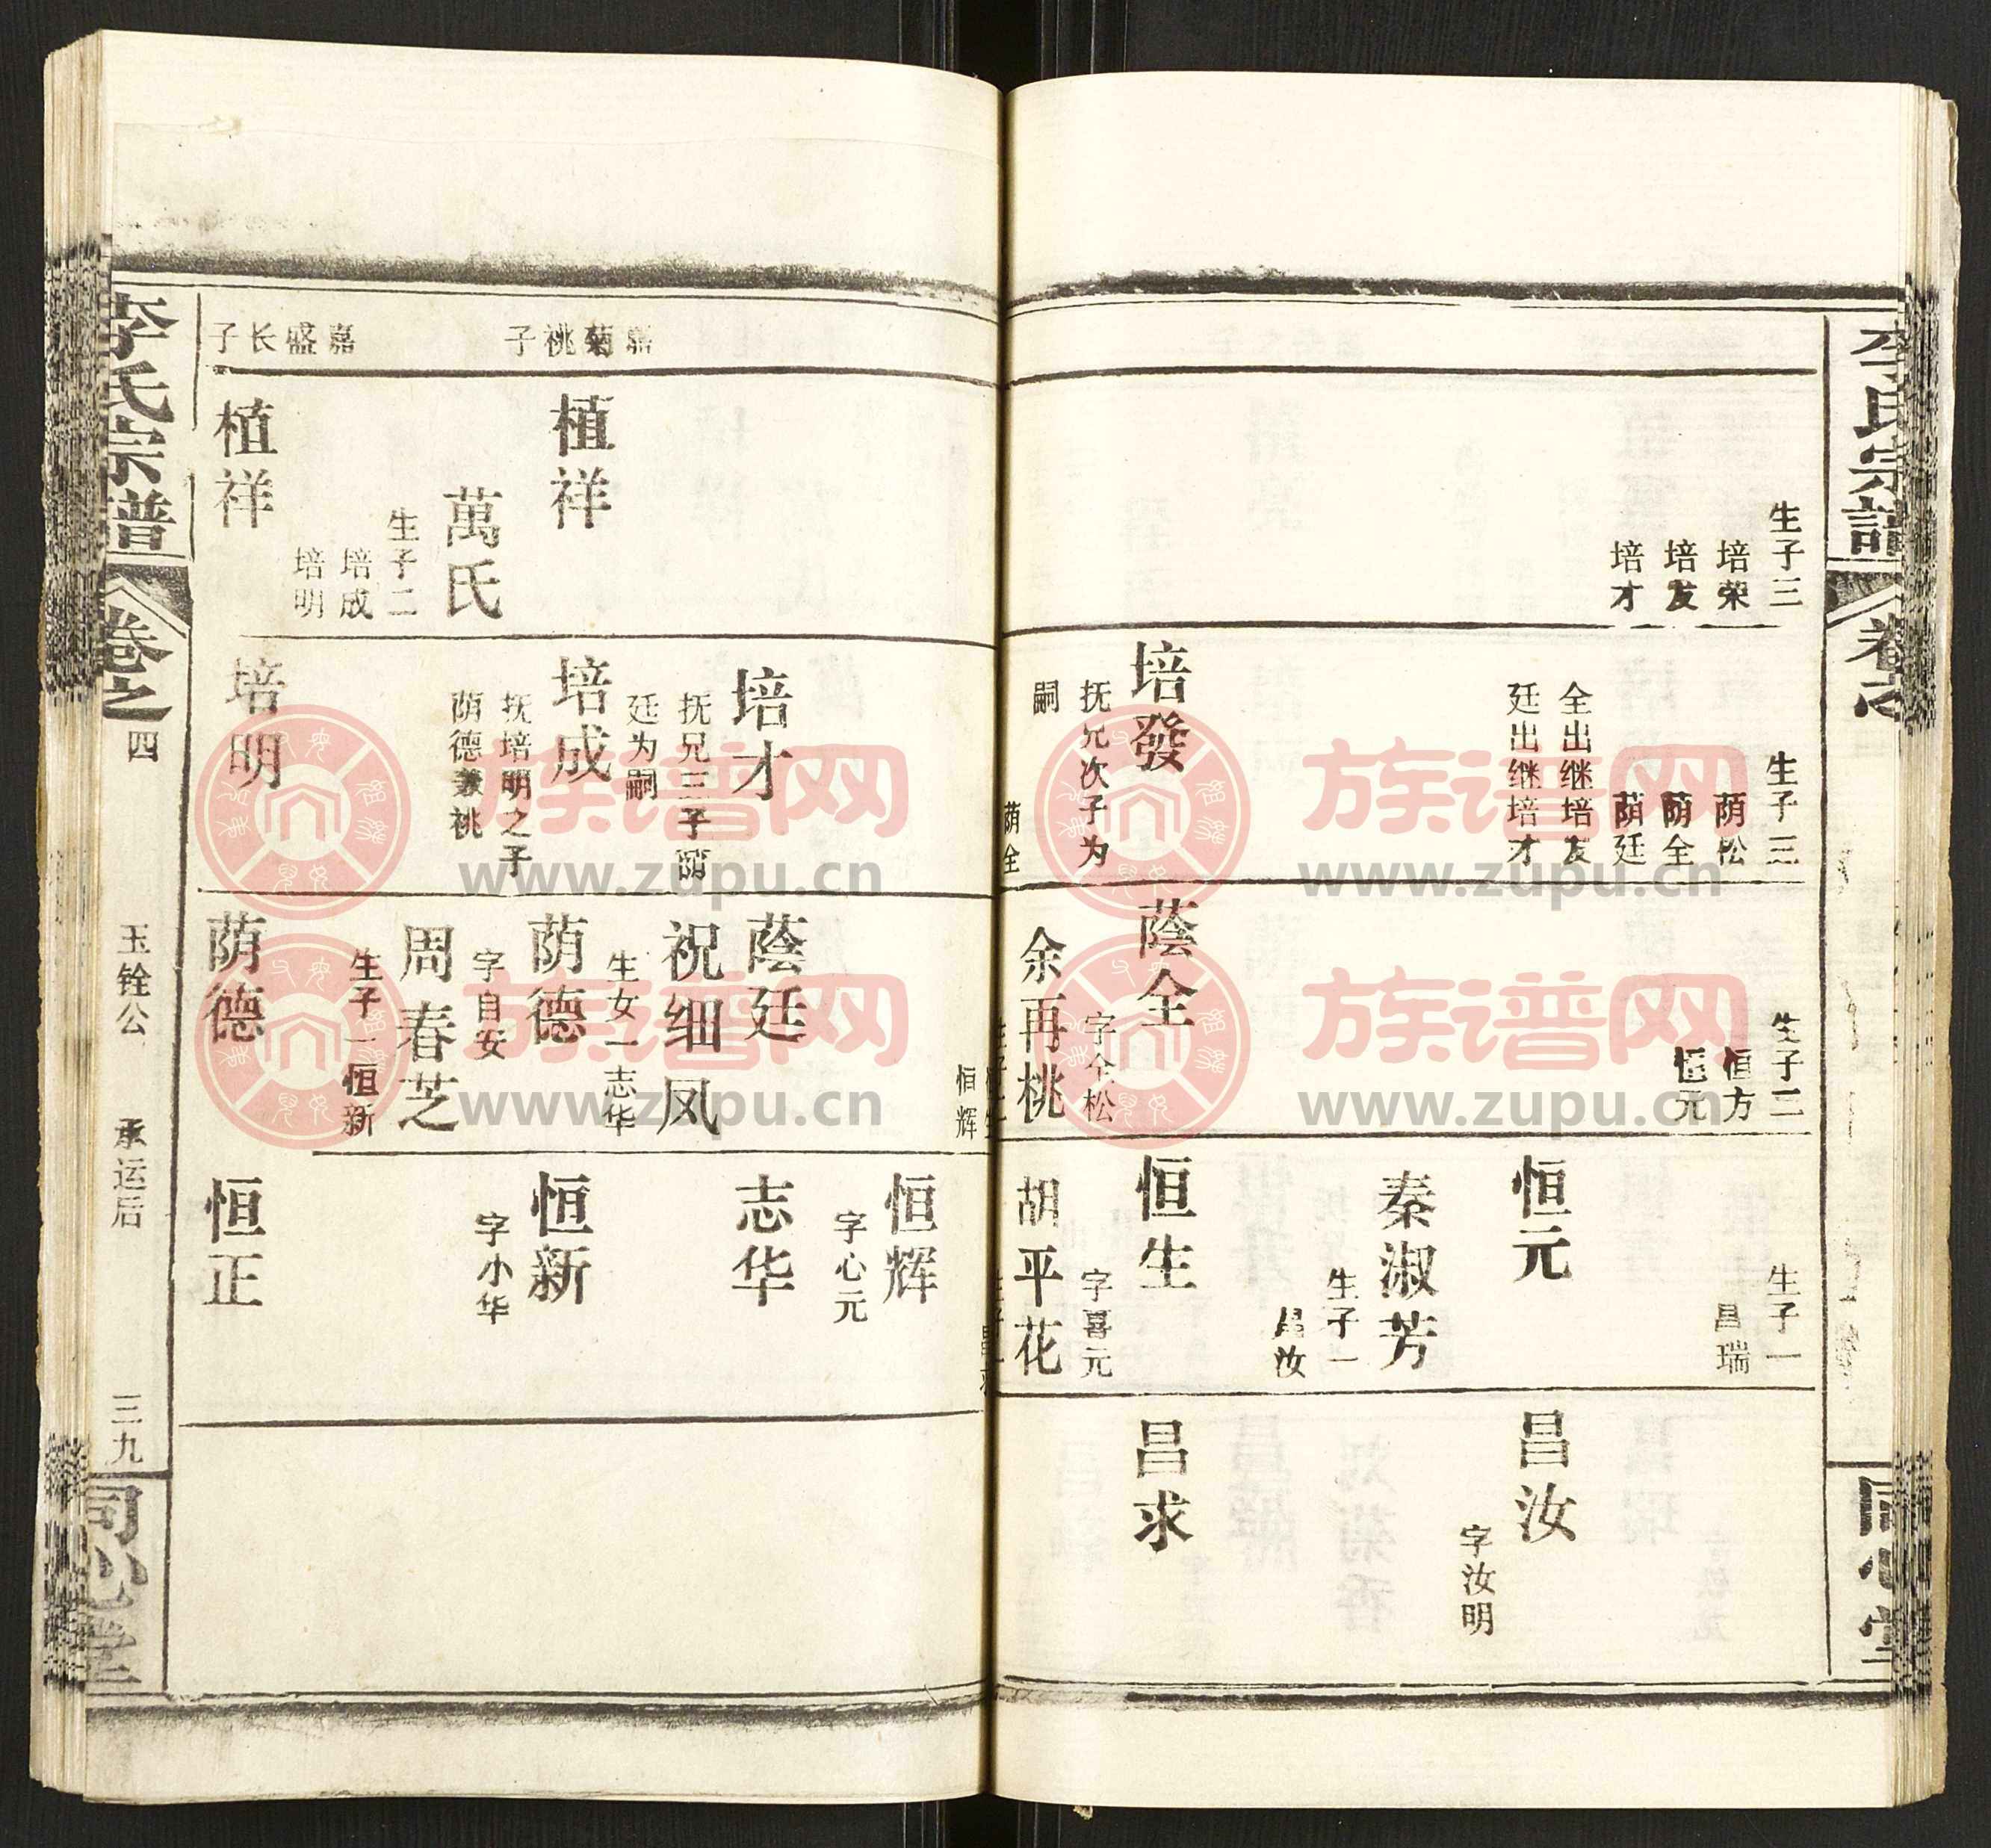 李氏宗譜
卷之
同心堂
生子三
培荣
培友
培才
生子三
荫松
荫全
荫廷
全出继培友
廷出继培才
培發
抚兄次子为
嗣
荫全
生子二
恒方
恒元
蔭全
字全松
余再桃
生子一
昌瑞
恒元
秦淑芳
生子一
昌汝
恒生
字喜元
胡平花
昌汝
字汝明
昌求
嘉菊祧子
嘉盛长子
植祥
萬氏
生子二
培成
培明
植祥
培才
抚兄三子荫
廷为嗣
培成
抚培明之子
荫德兼祧
培明
恒辉
蔭廷
祝细凤
生女一志华
荫德
字自安
周春芝
生子一恒新
荫德
恒辉
字心元
志华
恒新
字小华
恒正
李氏宗譜
卷之四
玉铨公
承运后
三九
同心堂
族谱网
www.zupu.cn
族谱网
www.zupu.cn
族谱网
www.zupu.cn
族谱网
www.zupu.cn